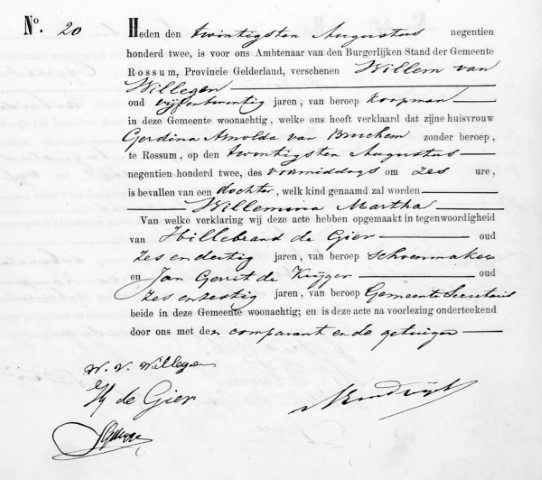 No. 20 Heden den twintigsten Augustus negentien
honderd twee, is voor ons Ambtenaar van den Burgerlijken Stand der Gemeente
Rossum, Provincie Gelderland, verschenen Willem van
Willegen
oud vijfentwintig jaren, van beroep koopman
in deze Gemeente woonachtig, welke ons heeft verklaard dat zijne huisvrouw
Gerdina Arnolda van Bruchem zonder beroep,
te Rossum, op den twintigsten Augustus
negentien honderd twee, des voormiddags om zes ure,
is bevallen van een dochter, welk kind genaamd zal worden
Willemina Martha
Van welke verklaring wij deze acte hebben opgemaakt in tegenwoordigheid
van Hillebrand de Gier oud
zes en dertig jaren, van beroep schoenmaker
en Jan Gerrit de Kuijper oud
zes en zestig jaren, van beroep Gemeente Secretaris
beide in deze Gemeente woonachtig; en is deze acte na voorlezing onderteekend
door ons met den comparant en de getuigen
W. v. Willegen
H de Gier